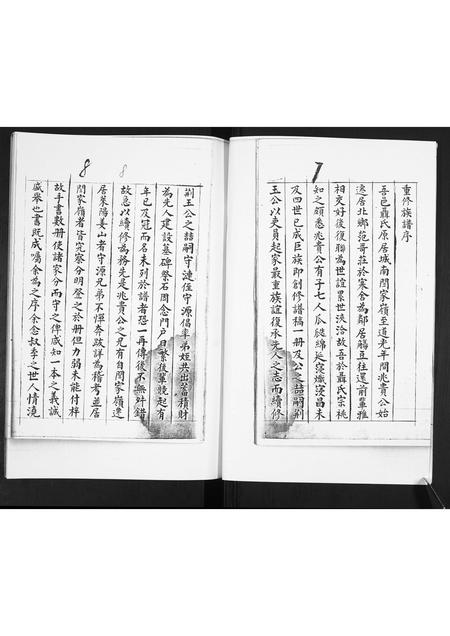 7
重修族譜序
吾邑聶氏原居城南閆家嶺至道光年間兆貴公始
遠居北鄉苑哥莊於寒舍為鄰居觴豆往還前輩雅
相友好後復聯為世誼累世浹洽故吾於聶氏宗祧
知之頗悉兆貴公有子七人瓜瓞綿延寖熾寖昌未
及四世已成巨族即創修譜稿一冊及公之喆嗣荊
玉公以吏員起家最重族誼復承先人之志而續修
8
8
荊玉公之喆嗣守漣侄守源倡率弟姪共出蓄積財
為先人建設墓碑祭石周念門戶日繁後輩競起有
年已及冠而名未列於譜者恐一再傳後不無舛錯
故急以續修為務先是兆貴公之兄有自閆家嶺遷
居萊陽姜山者守源兄弟不憚奔跋詳為稽考並居
閆家嶺者皆究察分明登之於冊但力弱未能付梓
故手書數冊使諸家分而守之俾咸知一本之義誠
盛舉也書既成囑余為之序余念叔季之世人情澆